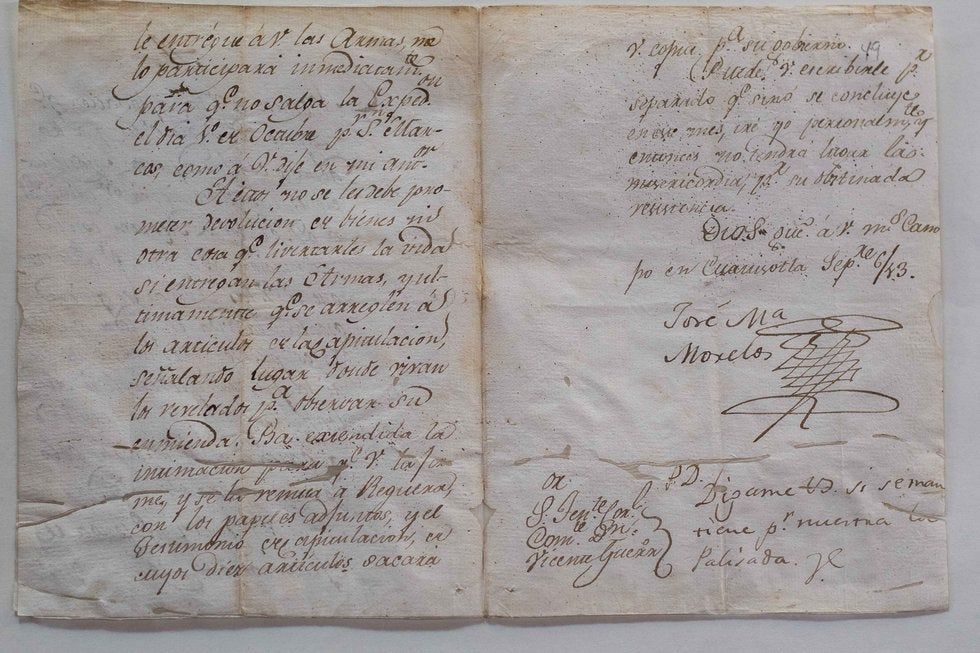 le entregue á V. las Armas, me
lo participará inmediatamte
para qe. no salga la Exped.on
el dia 1o. en Octubre pr. Sn. Mar-
cos, como á V. dije en mi antr.
A estos no se les debe pro-
meter devolucion en bienes ni
otra cosa qe. livertarles la vida
si entregan las Armas, y ul-
timamente qe. se arreglen á
los articulos en la Capitulacion,
señalando lugar donde vivan
los revelados pa. observar su
enmienda. Ba. extendida la
intimacion para qe. V. la fir-
me, y se la remita á Reguera,
con los papeles adjuntos, y el
Testimonio en Capitulacion, en
cuyos diez articulos sacará
49
V. copia pa. su gobierno.
Puede V. escribirle pr.
separado qe. sinó se concluye
en este mes, iré yo personalmte. y
entonces no tendrá lugar la
misericordia, pa. su obstinada
resistencia.
Dios gue. á V. ms. as. Cam
po en Cuanisotla Sepre. 6/813.
José Ma
Morelos
Or.
S. Tente Corl.
Comte. Dn.
Vicente Guerro
P. D. Digame V. si se man
tiene pr. nuestra la
Palisada.